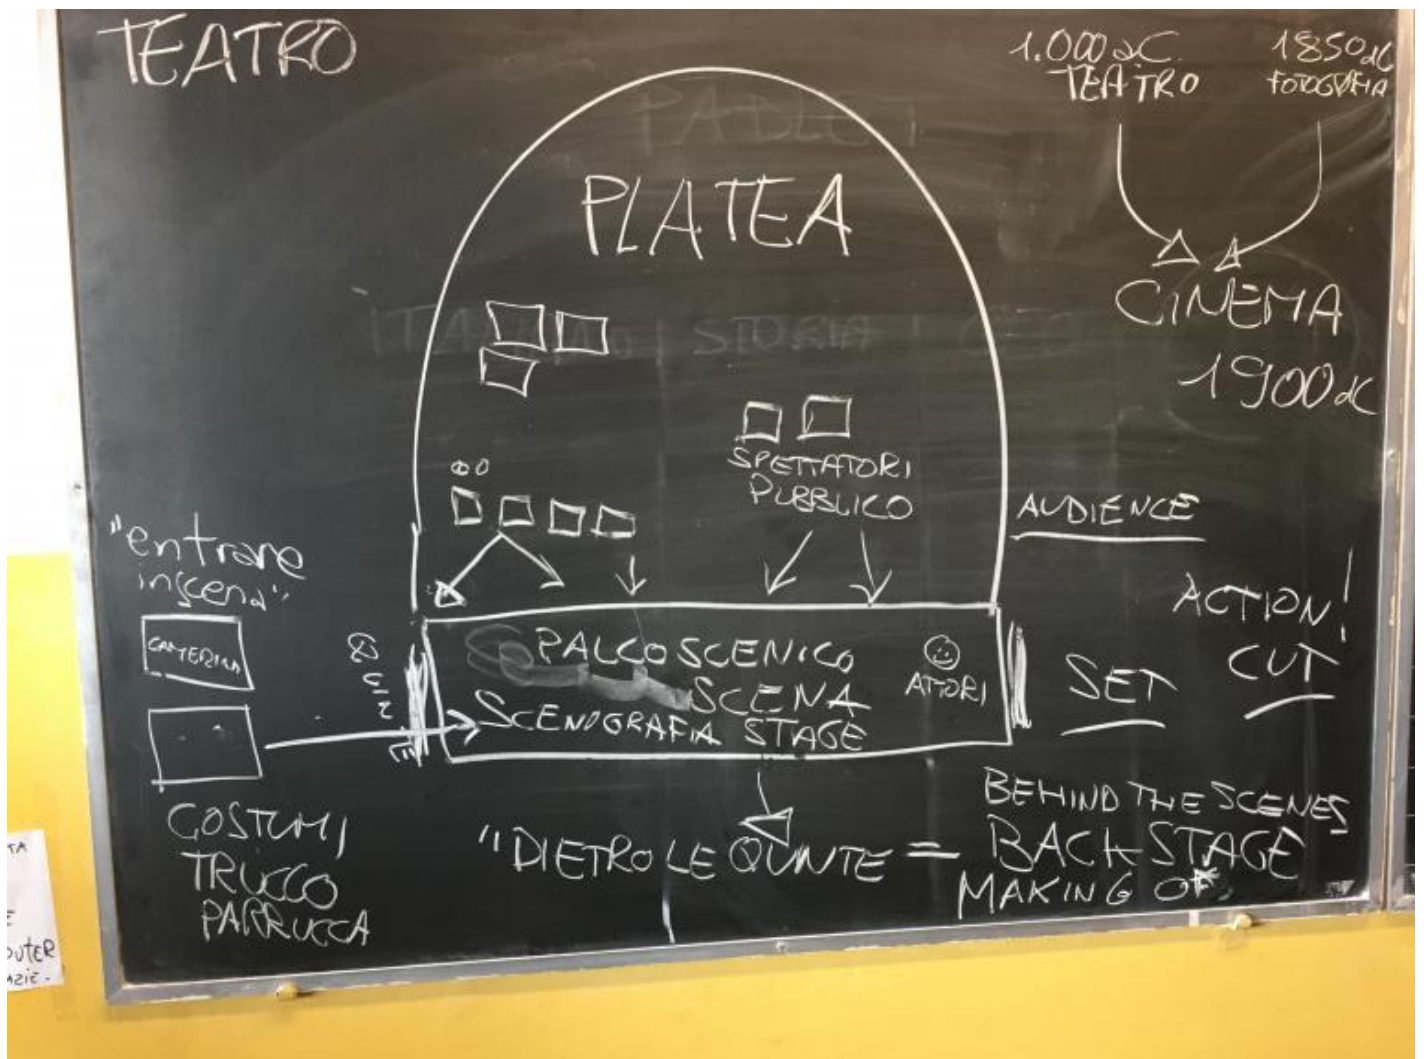 TEATRO
1.000 a.C.
TEATRO
1850 dC
FOTOGRAFIA
PLATEA
CINEMA
1900 dC
ITALIANO | STORIA
SPETTATORI
PUBBLICO
AUDIENCE
"entrare
in scena"
CAMERINI
PALCOSCENICO
SCENA
SCENOGRAFIA STAGE
ATTORI
SET
ACTION!
CUT
COSTUMI
TRUCCO
PARRUCCA
"DIETRO LE QUINTE =
BEHIND THE SCENES
BACKSTAGE
MAKING OF